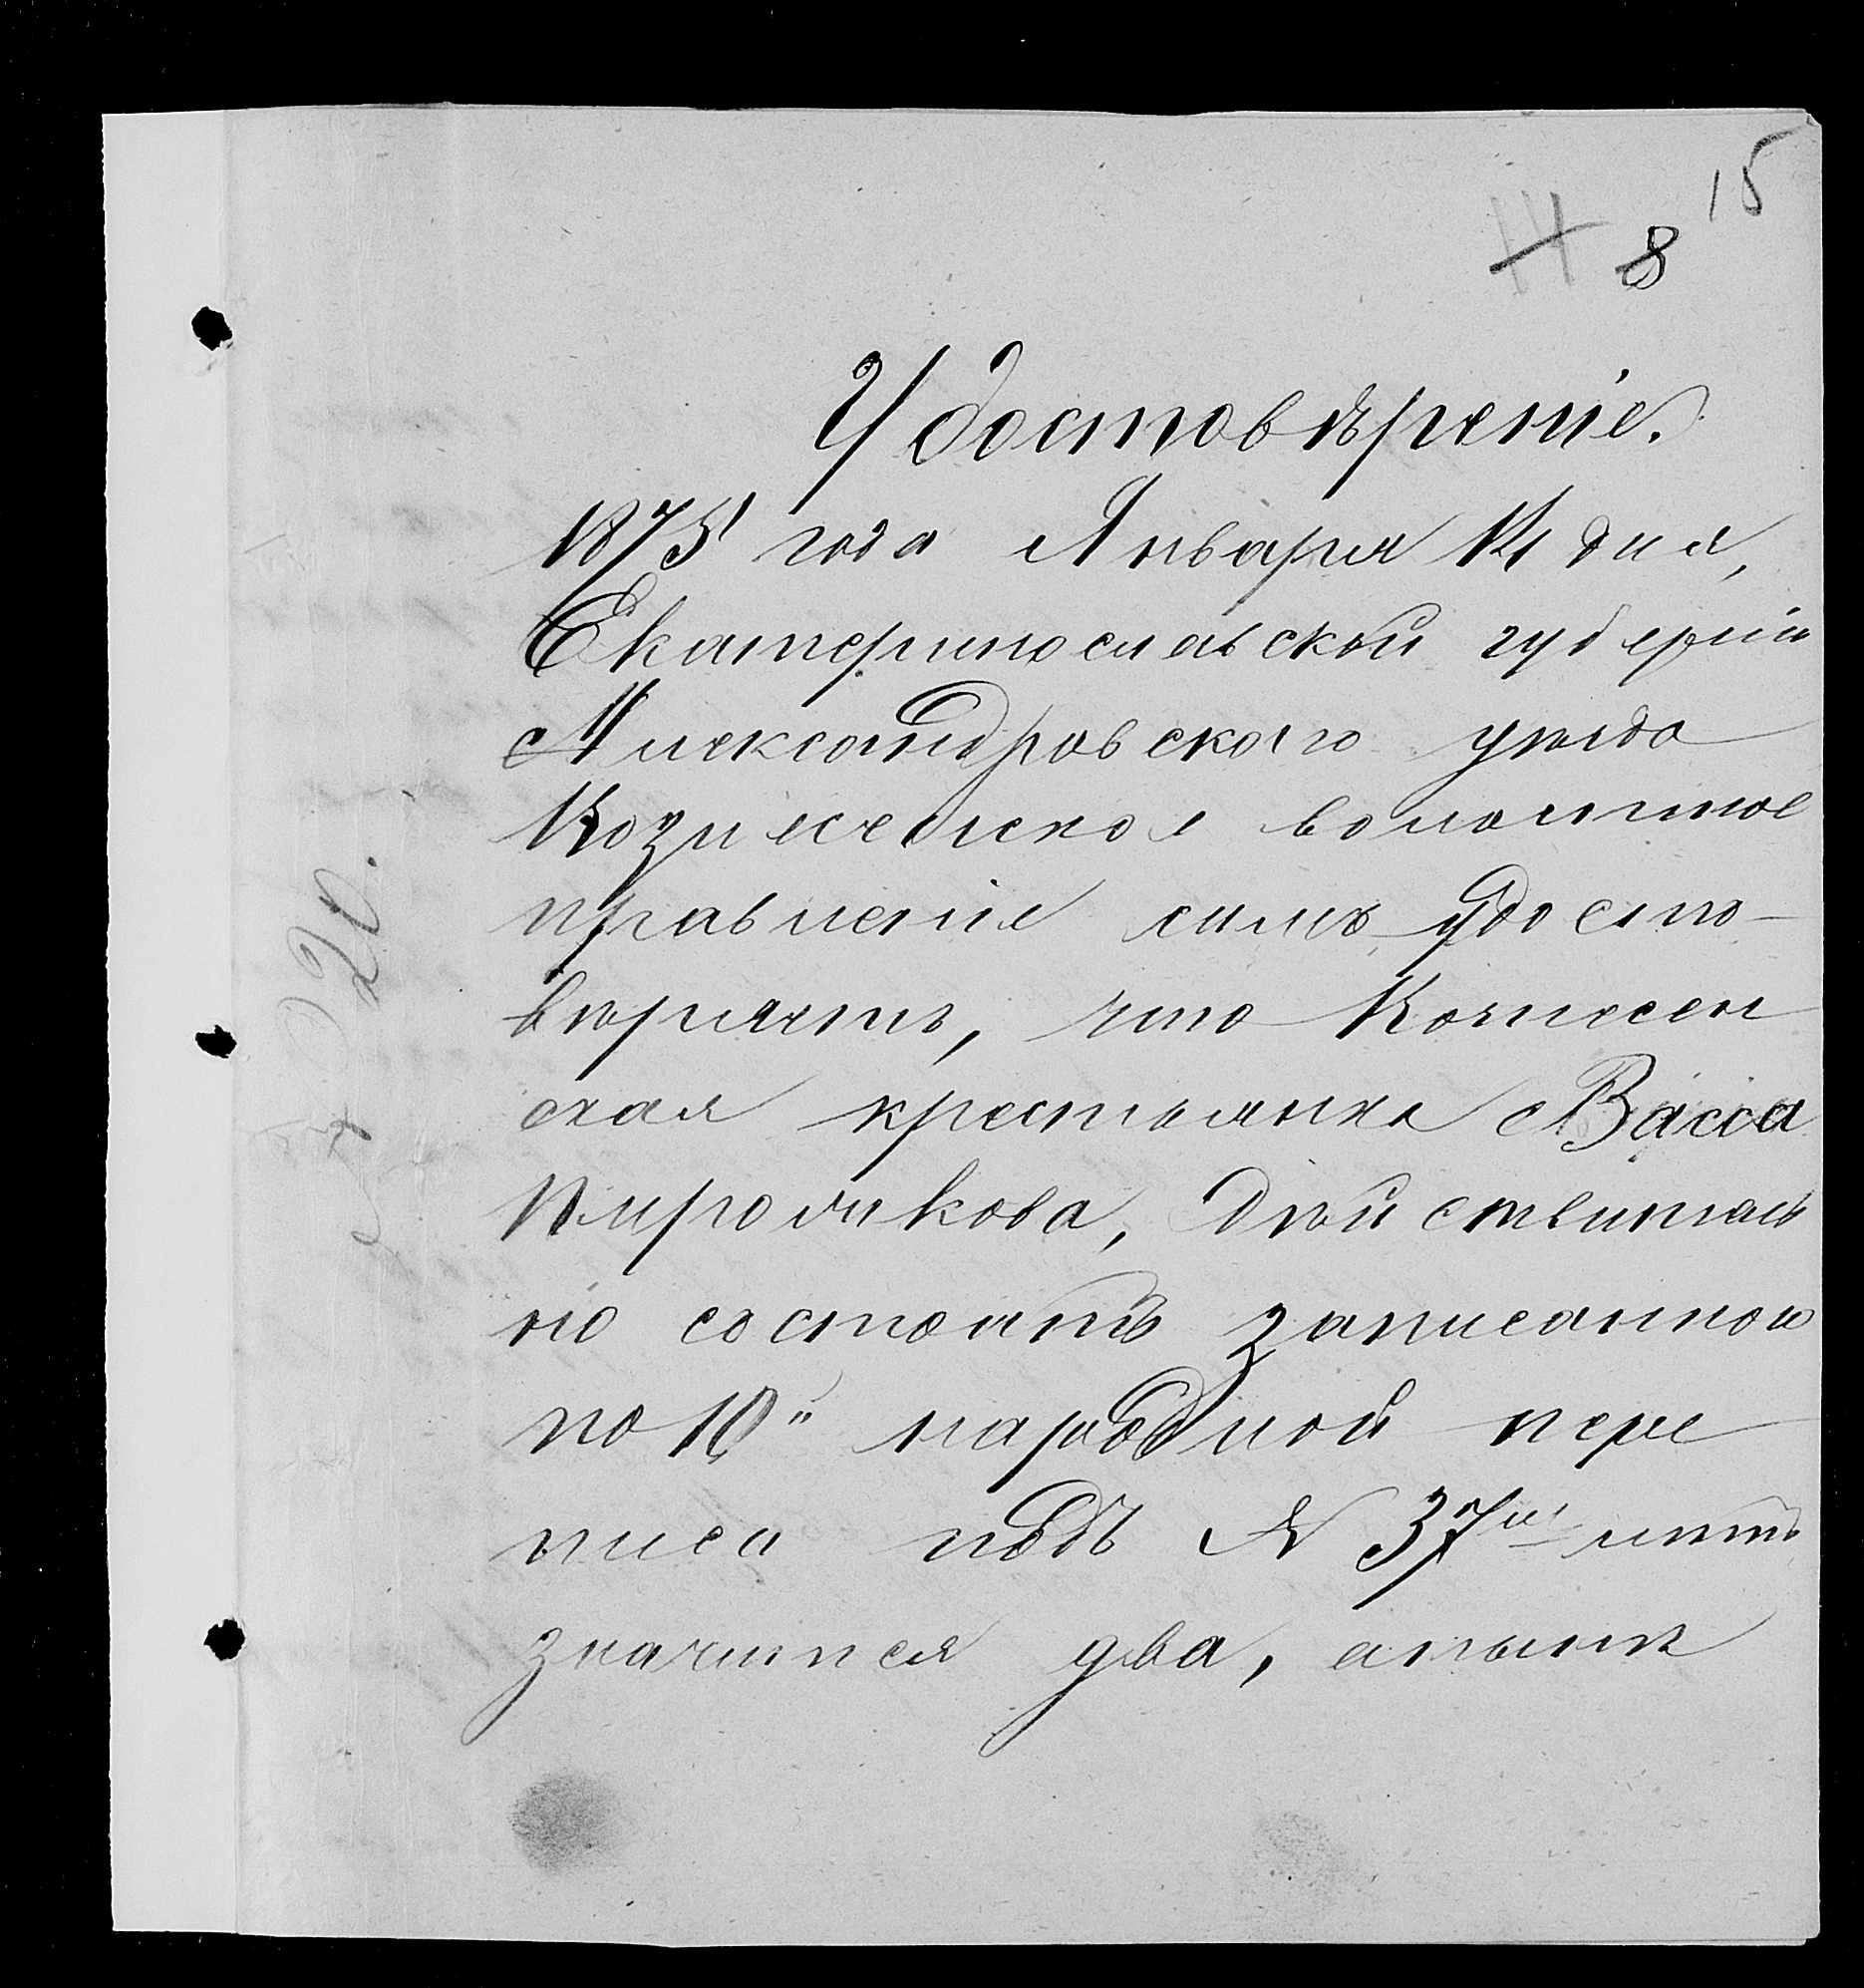 15
14 8
Удостовѣреніе.
1875 года Января 14 дня,
Екатеринославской губерніи
Александровского уѣзда
волостное
правленіе симъ удосто-
вѣряетъ, что
ская крестьянка Васса
дѣйствитель
но состоитъ записанною
по 10й народной пере
писи подъ № 37м лѣтъ
значится два, анынѣ
20.